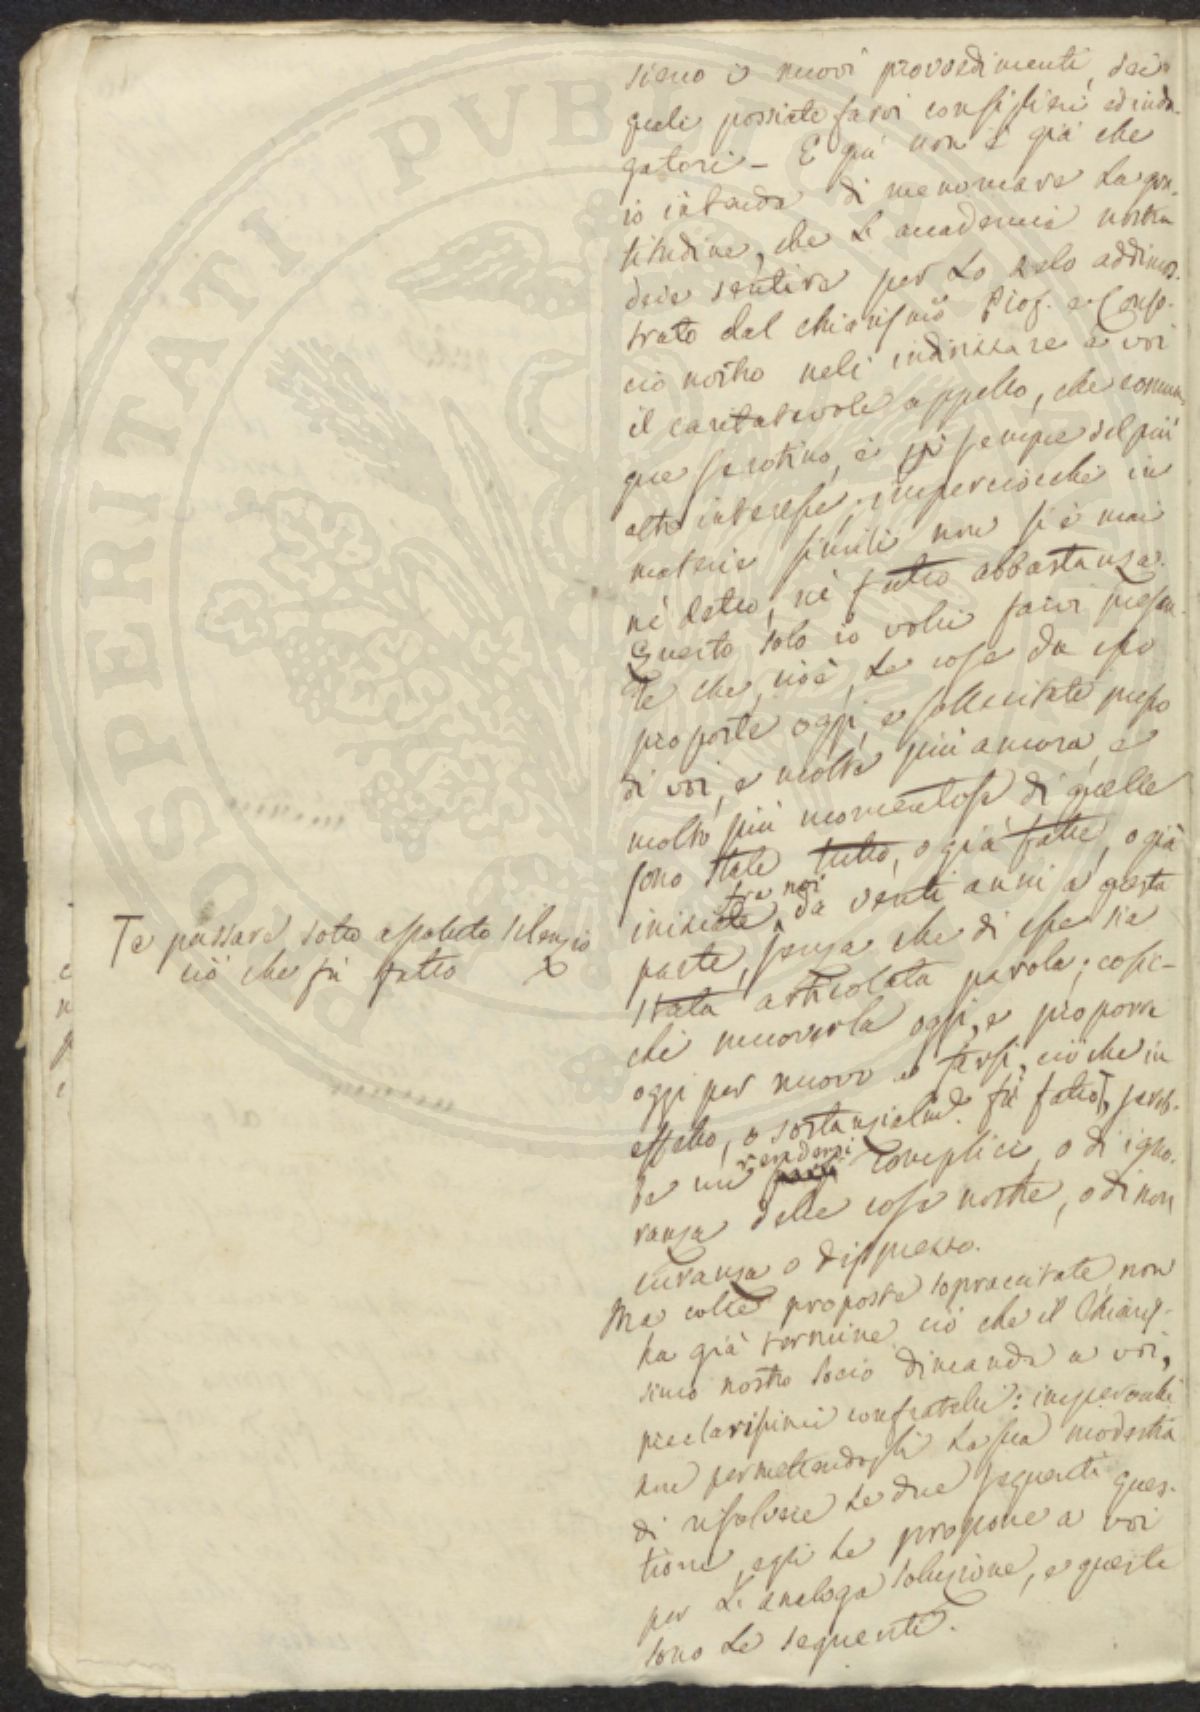 sieno i nuovi provvedimenti, dei
quali possiate farvi consiglieri ed inda-
gatori – E quì non è già che
io intenda di menomare La gra-
titudine, che L'accademia nostra
deve sentire per Lo zelo addimos-
trato dal chiarismo Prof. e Conso-
cio nostro nell' indirizzare a voi
il caritatevole appello, che comun-
que serotino, è pur sempre del più
alto interesse; imperciocchè in
materie simili non si è mai
nè detto, nè fatto abbastanza.
Questo solo io volli farvi presen-
te che, cioè, Le cose da esso
proposte oggi, e sollecitate presso
di voi, e molte più ancora, e
molto più momentose di quelle
sono state tutte, o già fatte, o già
iniziate tra noi da venti anni a questa
parte, senza che di esse sia
stata articolata parola; cosic-
chè muoverla oggi, e proporre
oggi per nuovo a farsi, ciò che in
effetto, o sostanzialme. fù fatto, sareb-
Te passare sotto assoluto silenzio
ciò che fù fatto x
be un rendersi complici o di igno-
ranza delle cose nostre, o di non
curanza o disprezzo.
Ma colle proposte sopracitate non
ha già termine ciò che il Chiaris-
simo nostro Socio dimanda a voi,
preclarissimi confratelli: imperocchè
non permettendogli La sua modestia
di risolvere Le due seguenti ques-
tioni, egli Le propone a voi
per L'analoga soluzione, e queste
sono Le seguenti.